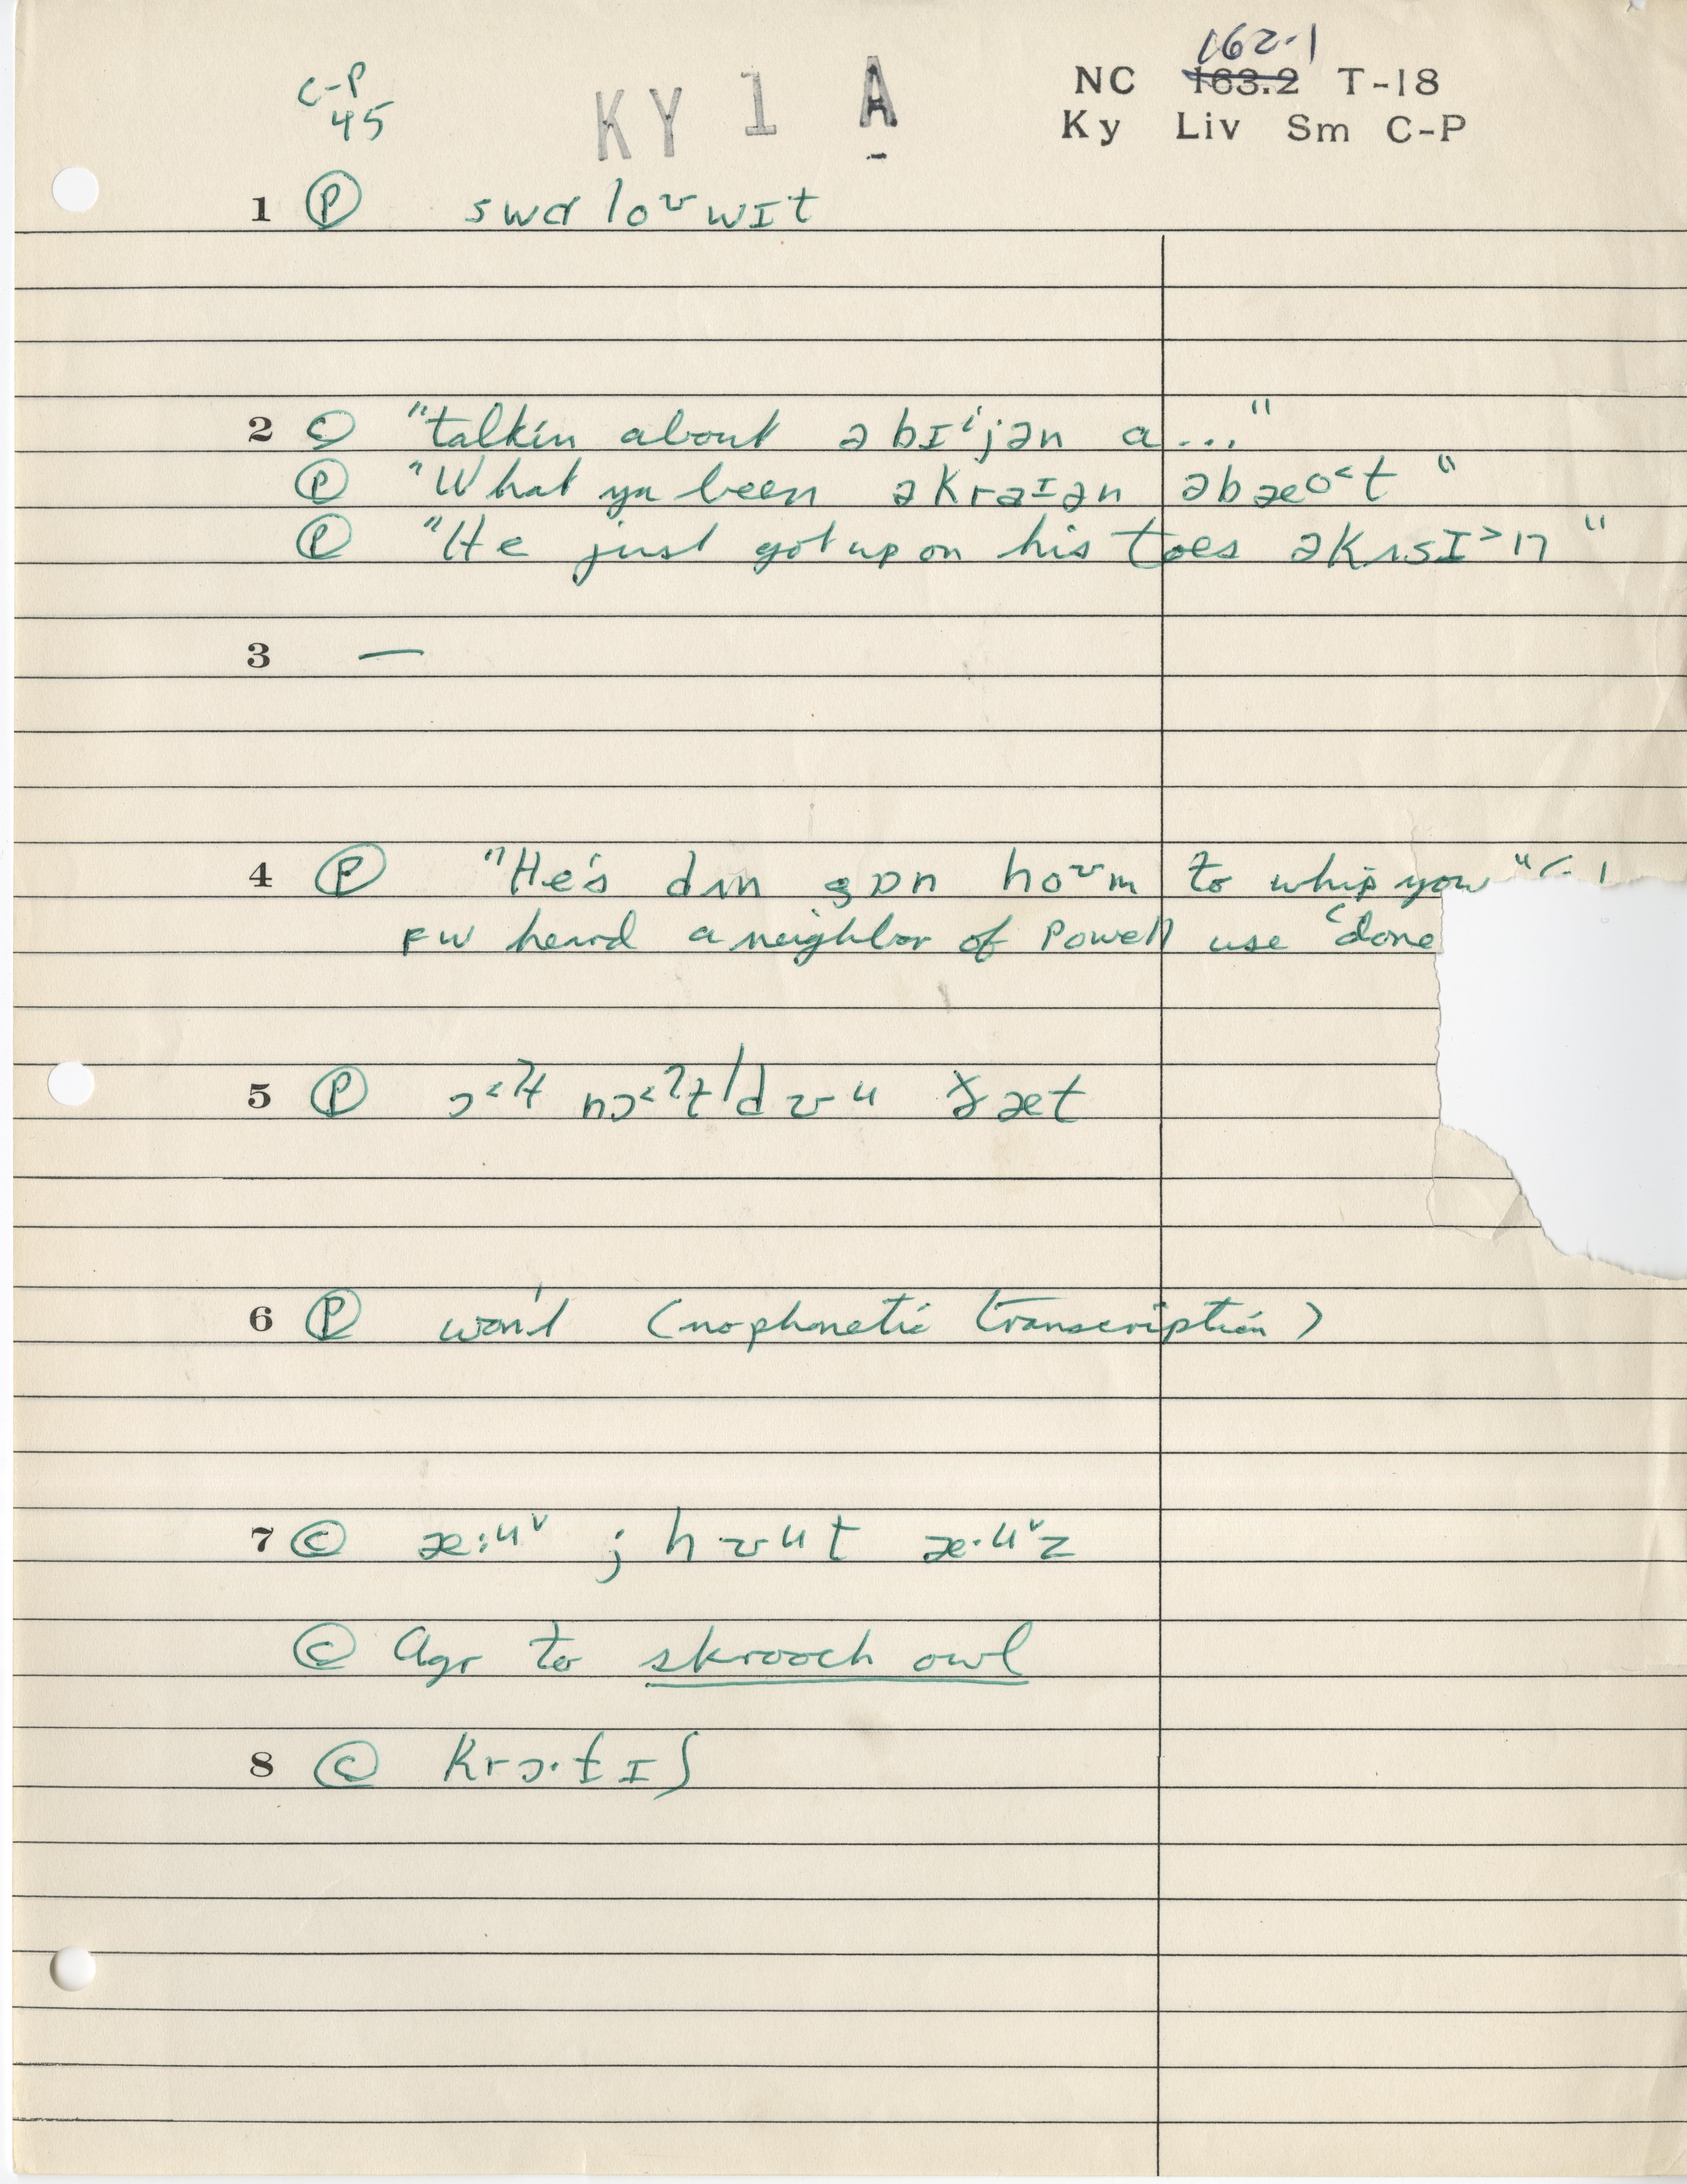 162.1
C-P KY 1 A NC 163.2 T-18
45 Ky Liv Sm C-P
1 Ⓟ swɑ loᶹ wɪt
2 Ⓒ "talkin about ə bɪⁱjən a..."
Ⓟ "What ya been əkraɪən əbæo˂t"
Ⓟ "He just got up on his toes əkʌsɪ˃n"
3 —
4 Ⓟ "He's dʌn gɒn hoᶹm to whip you"
FW heard a neighbor of Powell use 'done
5 Ⓟ ɔ˂ʔt nɔ˂ʔt/dʊu ðæt
6 Ⓟ won't (no phonetic transcription)
7 Ⓒ æ:uᵛ ; hʊut æ·uᵛz
Ⓒ Agr to skrooch owl
8 Ⓒ krɔ·tɪʃ